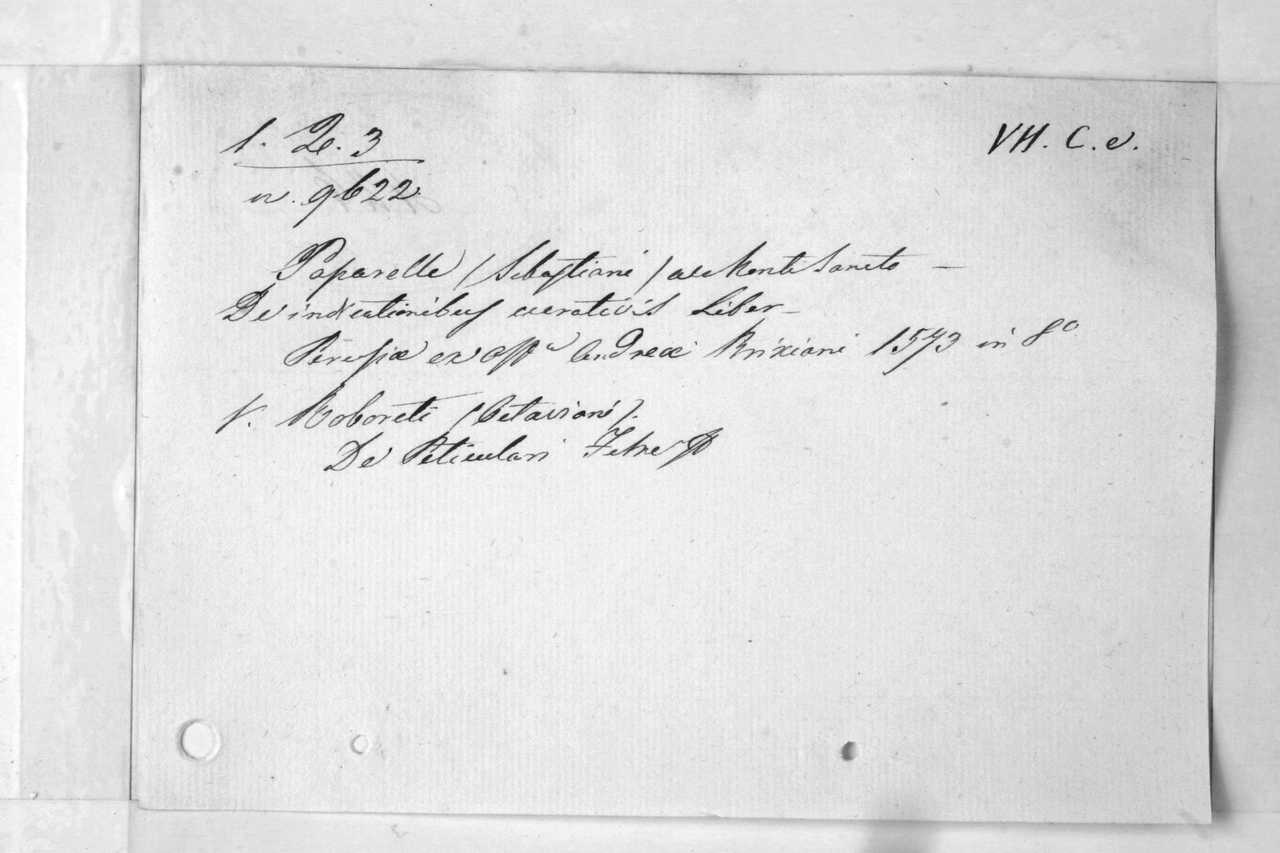 1. 2e. 3
VII. C. e.
n. 9622
Paparelle (Sebastiani) de Monte Sancto —
De indicationibus curativis Liber —
Perusiæ ex Offa Andreæ Brixiani 1573 in 8o
V. Roboreti (Octaviani).
De Peticulari Febre